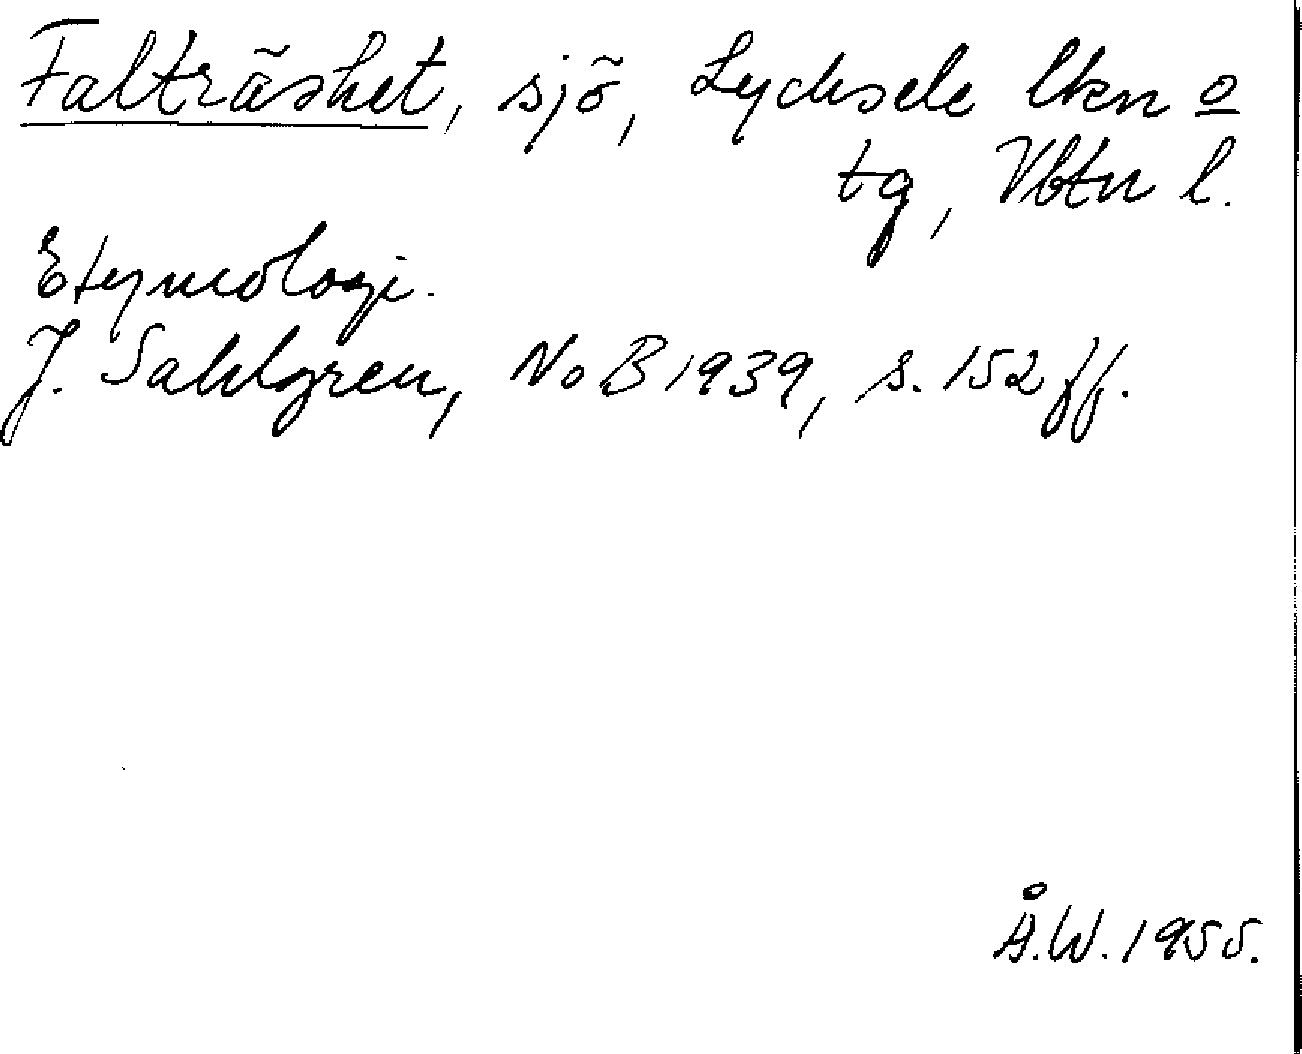 Falträsket, sjö, Lycksele lkn o
tg, Vbtn l.
Etymologi.
J. Sahlgren, NoB 1939, s. 152 ff.
Å.W. 1955.